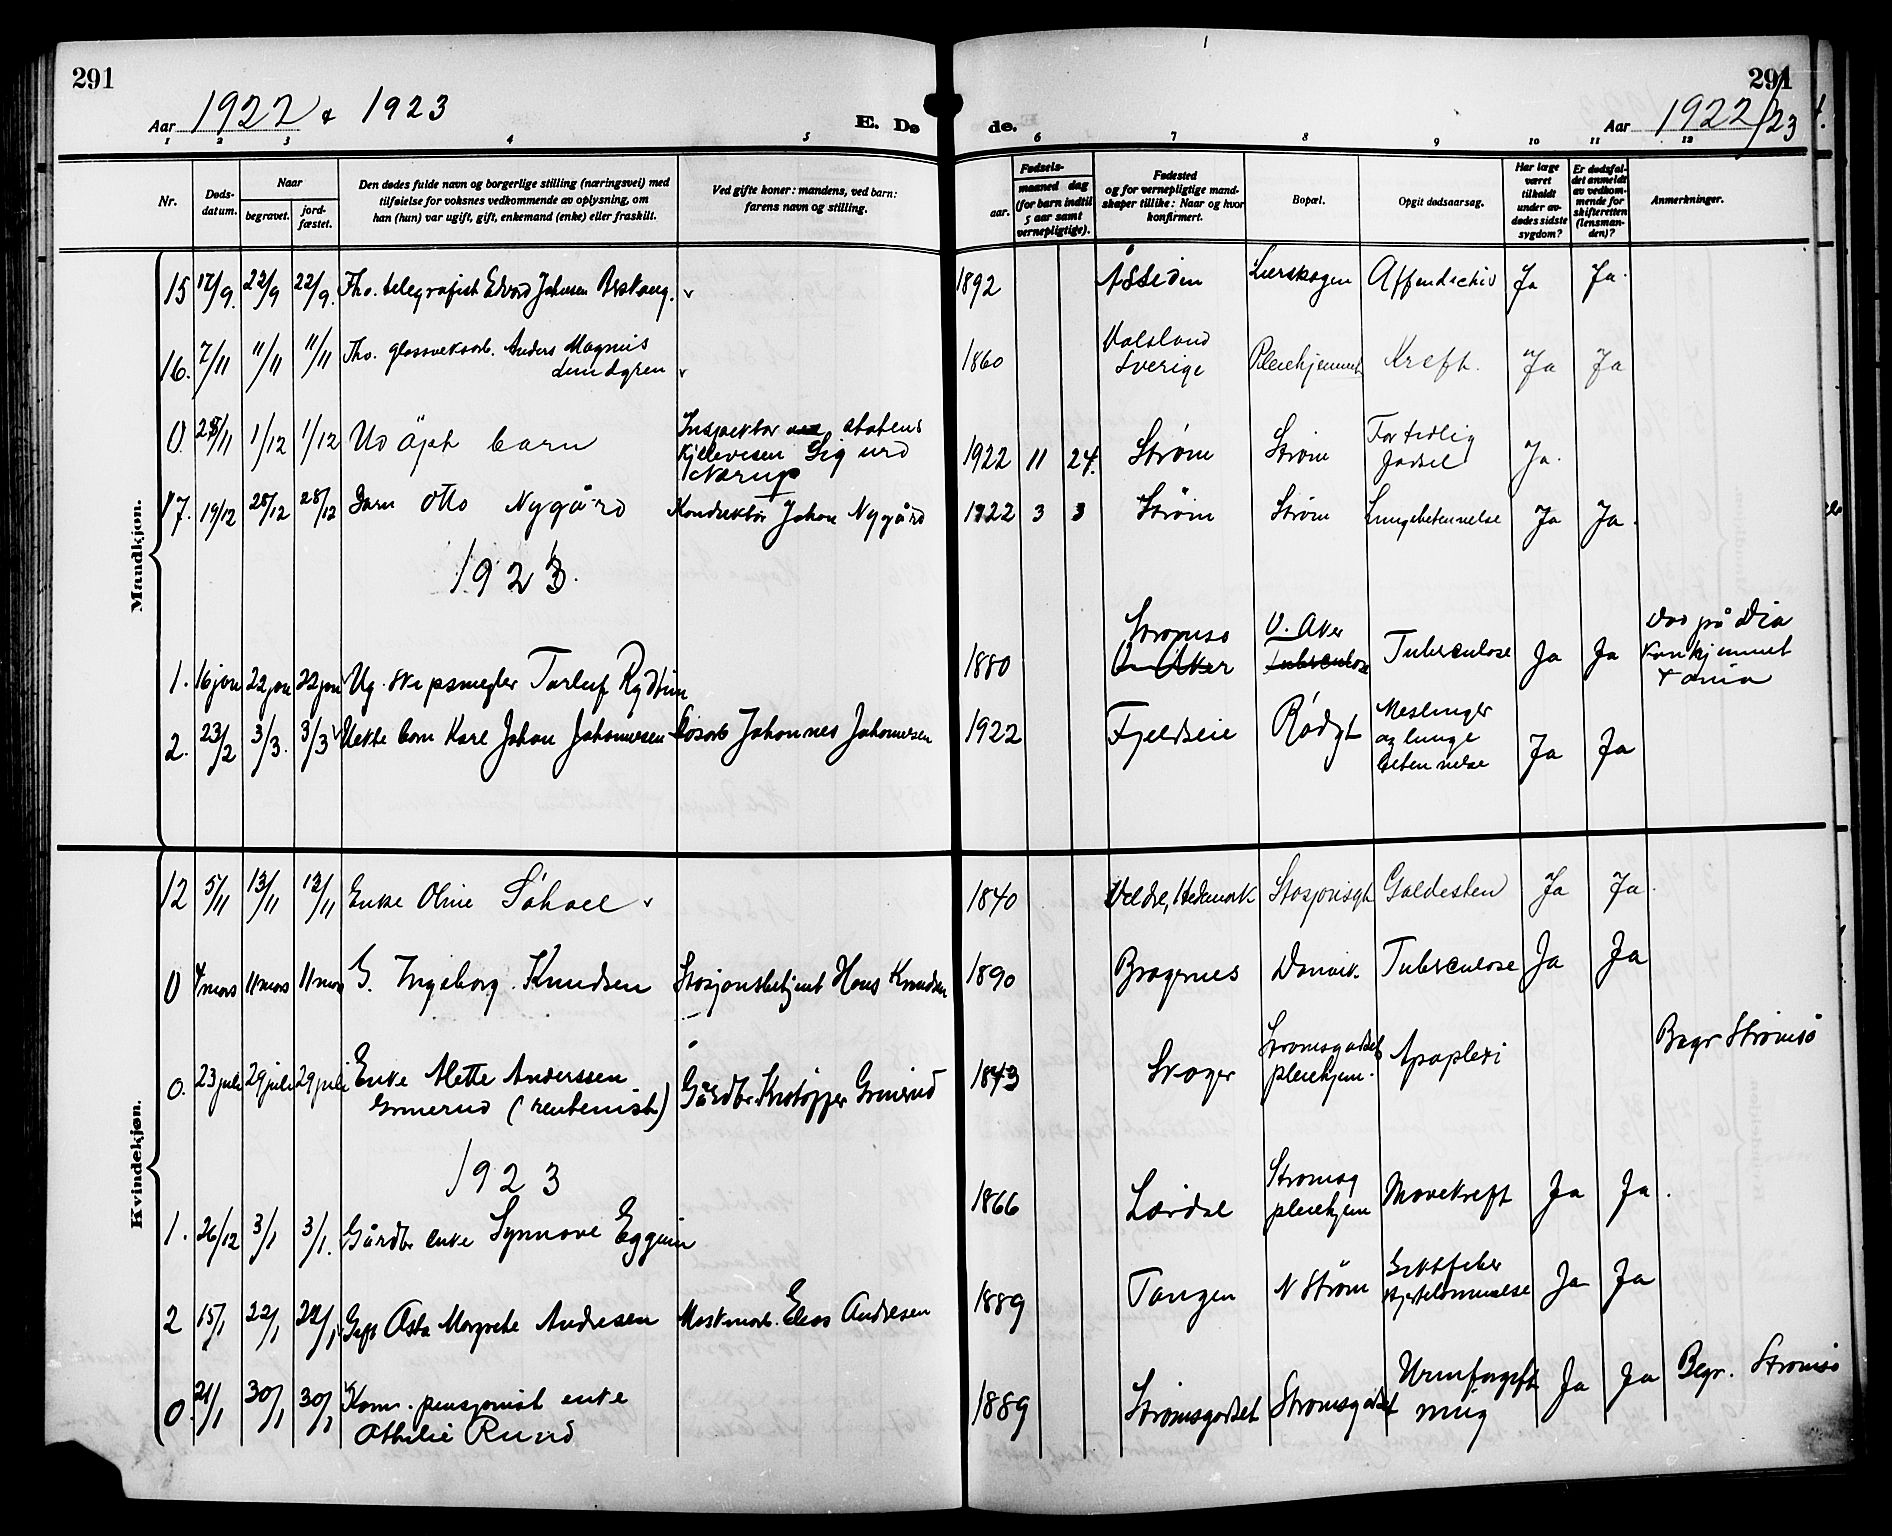 291
Aar 1922 & 1923
E. Døde.
291
Aar 1922/23
1 2 3 4 5 6 7 8 9 10 11 12
Nr.
Døds-datum.
Naar
begravet.
jord-fæstet.
Den dødes fulde navn og borgerlige stilling (næringsvei) med
tilføielse for voksnes vedkommende av oplysning, om
han (hun) var ugift, gift, enkemand (enke) eller fraskilt.
Ved gifte koner: mandens, ved barn:
farens navn og stilling.
Fødsels-
aar.
maaned dag
(for barn indtil
5 aar samt
vernepligtige).
Fødested
og for vernepligtige mand-
skaper tillike: Naar og hvor
konfirmert.
Bopæl.
Opgit dødsaarsag.
Har læge
været
tilkaldt
under av-
dødes sidste
sygdom?
Er dødsfal-
det anmeldt
av vedkom-
mende for
skifteretten
(lensman-
den)?
Anmerkninger.
Mandkjøn.
15 17/9. 22/9 22/9. Fhv. telegrafist Edvard Johnsen 1892 Åssiden Lierskogen Ja Ja.
16. 7/11 11/11 11/11 Fhv. glassverksarb. Anders Magnus
Lundgren 1860 Sverige Pleiehjemmet Kreft. Ja Ja
0. 28/11 1/12 1/12 Udöpt barn Inspektör statens
Sigurd
1922 11 24. Strøm Strøm For tidlig
födsel Ja.
17. 19/12 28/12 28/12 Barn Otto Nygård Konduktör Johan Nygård 1922 3 3 Strøm Strøm Lungebetennelse Ja Ja.
1923.
1. 16 jan 22 jan 22 jan Ug. skipsmegler Torleif 1880 Strømsø V. Aker Tuberculose Ja Ja Död på Dia
konhjemmet
2. 23/2 3/3. 3/3 Ekte barn Karl Johan Johannesen Johannes Johannesen 1922 Fjeldseie Rødgt Meslinger
og lunge
betennelse Ja Ja
Kvindekjøn.
12 5/11 13/11 13/11 Enke Oline 1840 Veldre, Hedemark Stasjonsgt Galdesten Ja Ja.
0 4 mars 11 mars 11 mars G. Ingeborg Knudsen Stasjonsbetjent Hans Knudsen 1890 Bragernes Danvik. Tuberculose Ja Ja
0. 23 juli 29 juli 29 juli Enke Mette Anderssen
Grinerud (rentenist) Gårdbr. Kristoffer Grinerud 1843 Skoger Strømsgodset
pleiehjem. Apopleksi Begr Strömsö
1923
1. 26/12 3/1 3/1. Gårdbr enke Synnøve Eggum 1866 Lærdal Strømsg
pleiehjem Mavekreft Ja Ja.
2 15/1 22/1 22/1 Gift Asta Margrethe Andresen Maskinarb. Elias Andresen 1889 Tangen N Strøm Giktfeber
Ja Ja
0. 21/1 30/1 30/1 Kom. pensjonist enke
Othilie Ruud 1889 Strömsgodset Strömsgodset Urinforgift
ning Ja Ja Begr. Strömsö